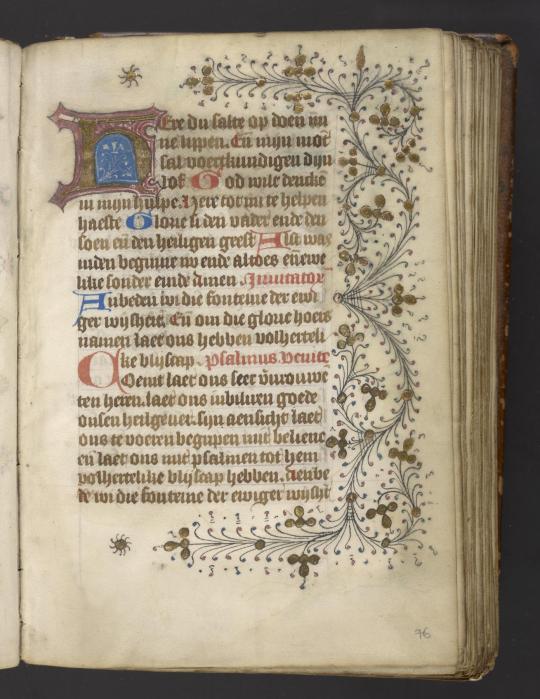 Here du salte op doen mi
ne lippen. En mijn mot
sal voertkundigen dijn
lof God wile dencke
in mijn hulpe. Here tot mi te helpen
haeste Glorie si den vader ende den
soen en den heiligen geest Alst was
inden beginne nv ende altoes en ewe
like sonder einde Amen Inuitator
Anbeden wi die fonteine der ewi
ger wijsheit. En om die glorie hoers
namen laet ons hebben volherteli
ke blijscap. Psalmus. Venite
Oemt laet ons seer vervrouwe
ten heren. laet ons iubiliren gode
onsen heilgeuer. sijn aensicht laet
ons te voeren begripen mit beliene
en laet ons mit psalmen tot hem
volhertelike blijscap hebben. Aenbe
de wi die fonteine der ewiger wijsht
96